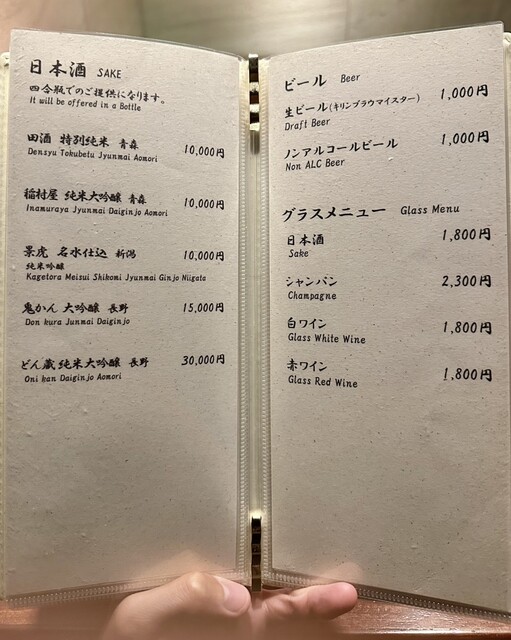 日本酒 SAKE
四合瓶でのご提供になります。
It will be offered in a Bottle
田酒 特別純米 青森 10,000円
Densyu Tokubetu Jyunmai Aomori
稲村屋 純米大吟醸 青森 10,000円
Inamuraya Jyunmai Daiginjo Aomori
景虎 名水仕込 新潟 10,000円
純米吟醸
Kagetora Meizui Shikomi Jyunmai Ginjo Niigata
鬼かん 大吟醸 長野 15,000円
Don kura Junmai Daiginjo
どん蔵 純米大吟醸 長野 30,000円
Oni kan Daiginjo Aomori
ビール Beer
生ビール(キリンブラウマイスター) 1,000円
Draft Beer
ノンアルコールビール 1,000円
Non ALC Beer
グラスメニュー Glass Menu
日本酒 1,800円
Sake
シャンパン 2,300円
Champagne
白ワイン 1,800円
Glass White Wine
赤ワイン 1,800円
Glass Red Wine